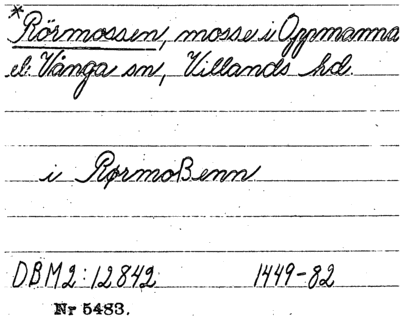 *Rörmossen, mosse i Oppmanna
el. Vånga sn, Villands hd.
i Rørmoßenn
DBM2:12842 1449-82
Nr 5483.